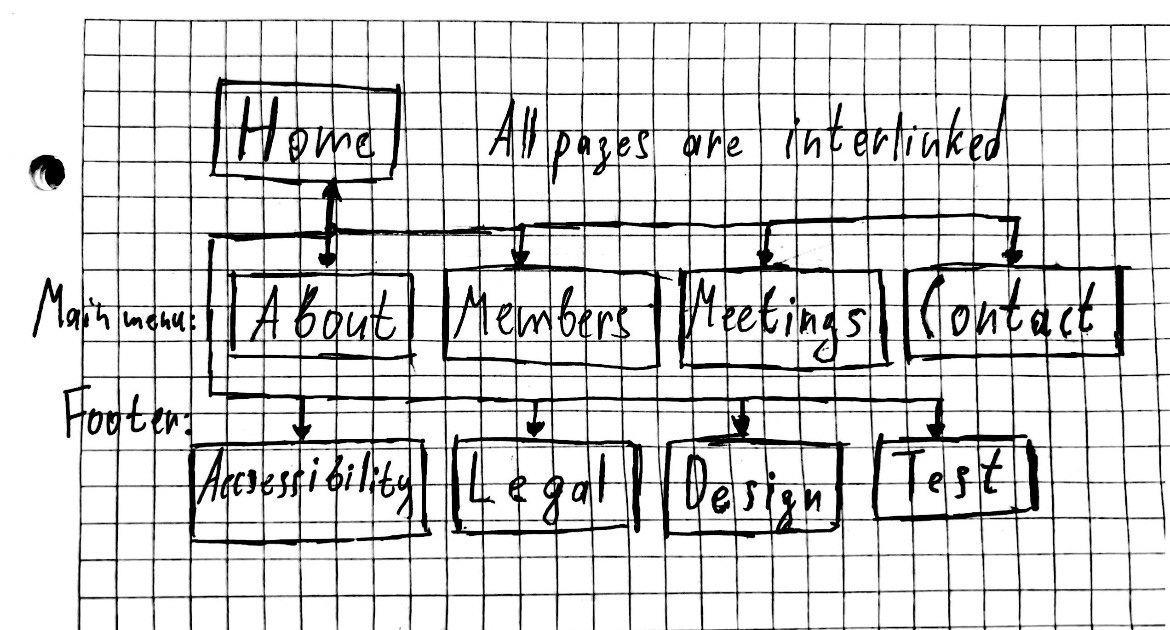 Home
All pages are interlinked
Main menu:
About
Members
Meetings
Contact
Footer:
Accsessibility
Legal
Design
Test